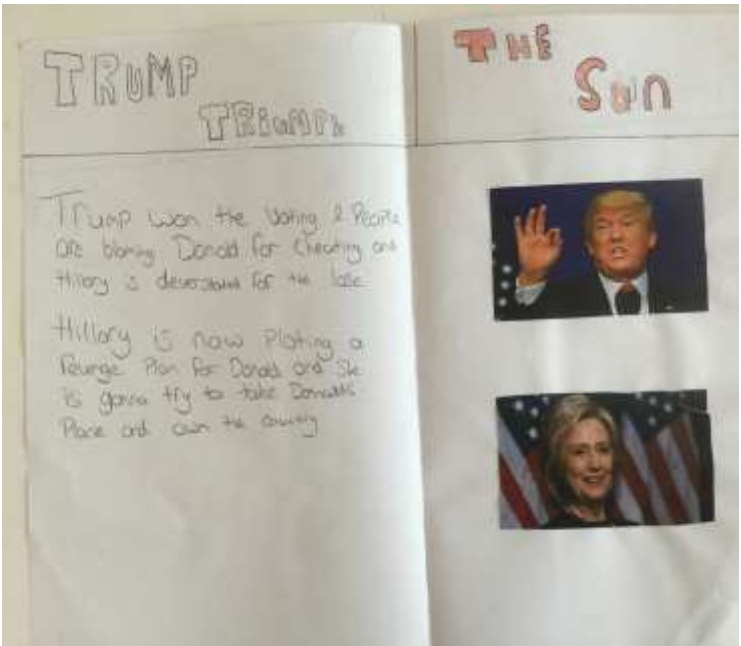 TRUMP
TRIUMPh
Trump won the Voting & People
are blaming Donald for Cheating and
Hillary is for the lose
Hillary is now Ploting a
Revenge Plan for Donald and She
is gonna try to take Donalds
Place and own the Country
THE
Sun